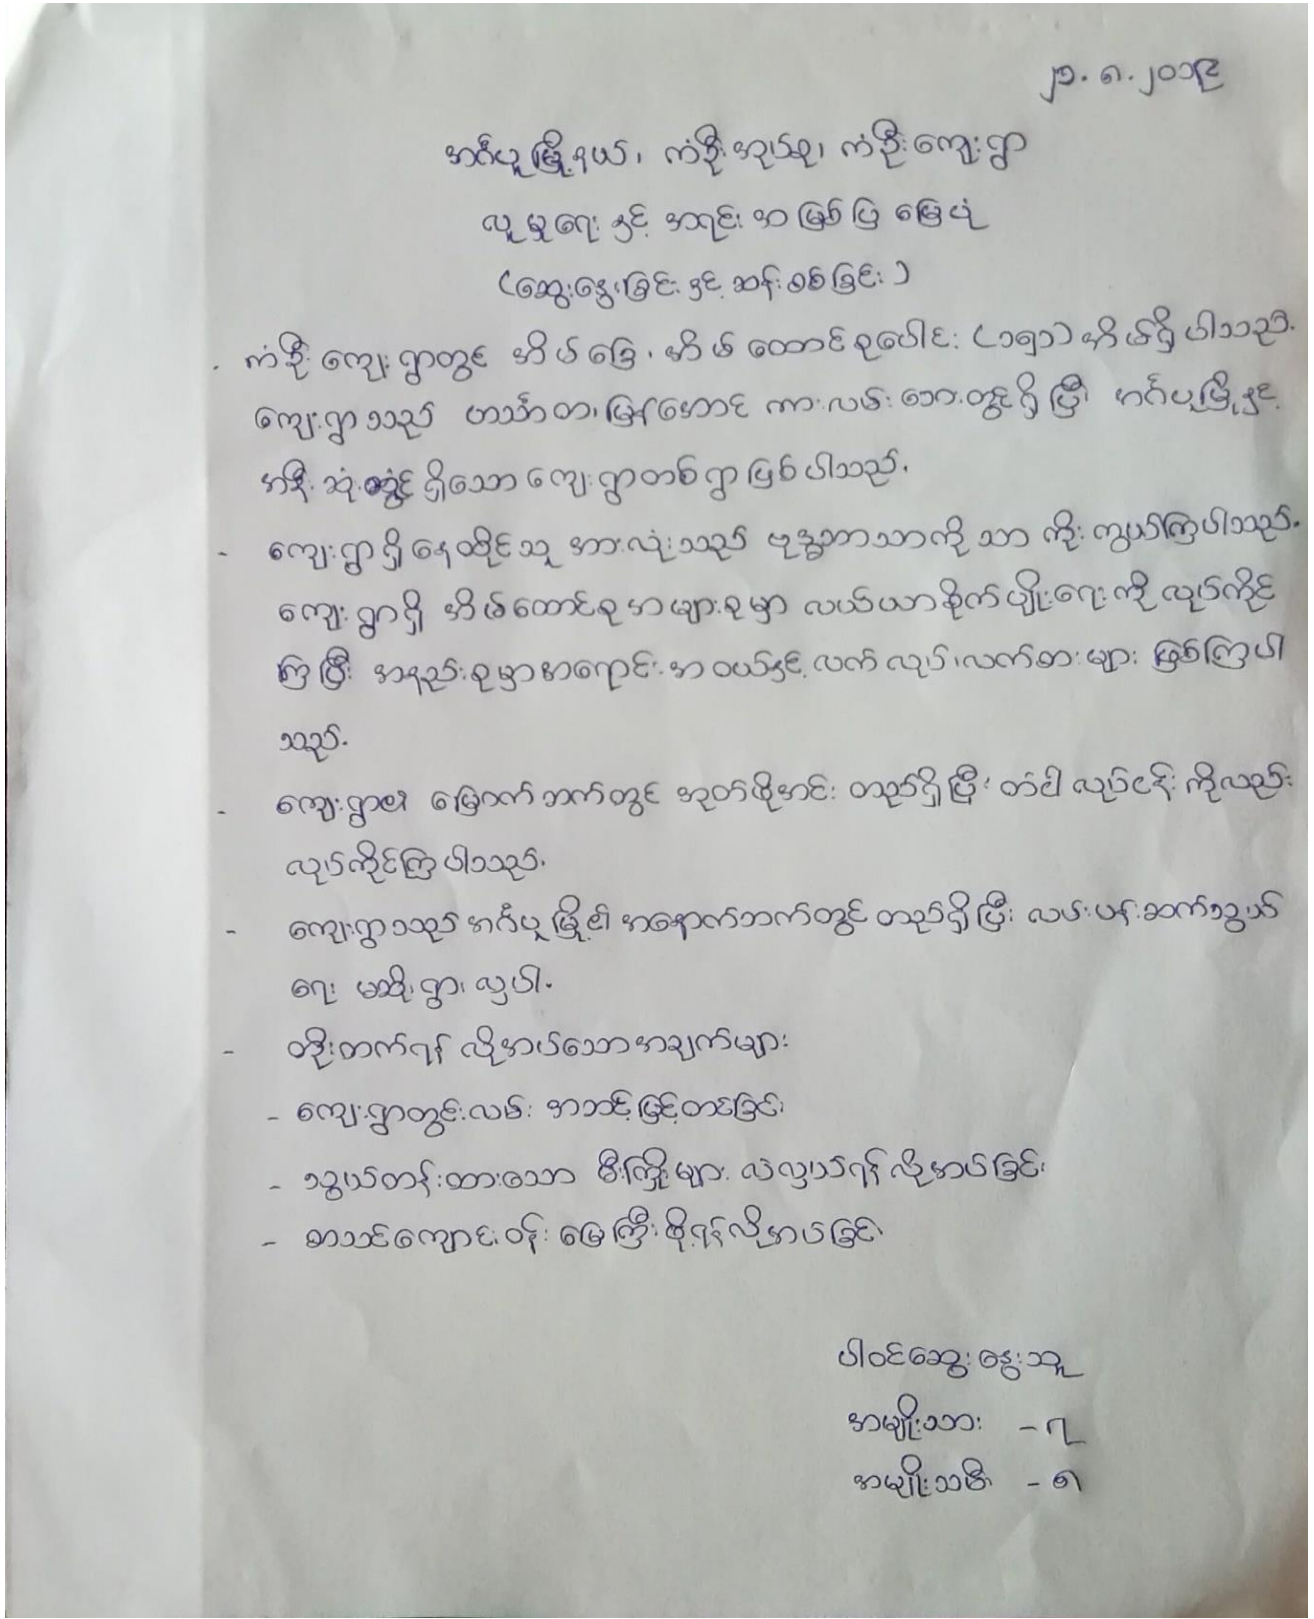 ၂၁.၈.၂၀၁၉
အင်္ဂပူမြို့နယ်၊ ကံဦးအုပ်စု၊ ကံဦးကျေးရွာ
လူမှုရေးနှင့် အရင်းအမြစ်ပြ မြေပုံ
(ဆွေးနွေးခြင်းနှင့် ဆန်းစစ်ခြင်း)
- ကံဦးကျေးရွာတွင် အိမ်ခြေ၊ အိမ်ထောင်စုပေါင်း (၁၅၁) အိမ်ရှိပါသည်.
ကျေးရွာသည် ဟင်္သာတ၊ မြန်အောင် ကားလမ်းဘေးတွင်ရှိပြီး အင်္ဂပူမြို့နှင့်
အနီးဆုံးတွင်ရှိသော ကျေးရွာတစ်ရွာဖြစ်ပါသည်.
- ကျေးရွာရှိနေထိုင်သူ အားလုံးသည် ဗုဒ္ဓဘာသာကိုသာ ကိုးကွယ်ကြပါသည်.
ကျေးရွာရှိ အိမ်ထောင်စုအများစုမှာ လယ်ယာစိုက်ပျိုးရေးကို လုပ်ကိုင်
ကြပြီး အနည်းစုမှာအရောင်းအဝယ်နှင့် လက်လုပ်၊လက်စားများ ဖြစ်ကြပါ
သည်.
- ကျေးရွာ၏ မြောက်ဘက်တွင် အုတ်ဖိုအင်း တည်ရှိပြီး တံငါလုပ်ငန်းကိုလည်း
လုပ်ကိုင်ကြပါသည်.
- ကျေးရွာသည် အင်္ဂပူမြို့၏ အနောက်ဘက်တွင် တည်ရှိပြီး လမ်းပန်းဆက်သွယ်
ရေး မဆိုးရွားလှပါ.
- တိုးတက်ရန် လိုအပ်သောအချက်များ
- ကျေးရွာတွင်းလမ်း အဆင့်မြှင့်တင်ခြင်း
- သွယ်တန်းထားသော မီးကြိုးများ လဲလှယ်ရန်လိုအပ်ခြင်း
- စာသင်ကျောင်းဝန်း မြေကြီးဖို့ရန်လိုအပ်ခြင်း
ပါဝင်ဆွေးနွေးသူ
အမျိုးသား - ၇
အမျိုးသမီး - ၈